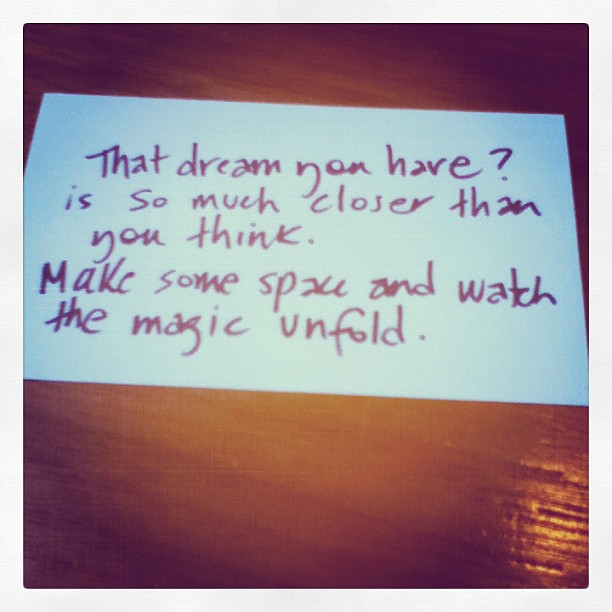 That dream you have?
is so much closer than
you think.
Make some space and watch
the magic unfold.